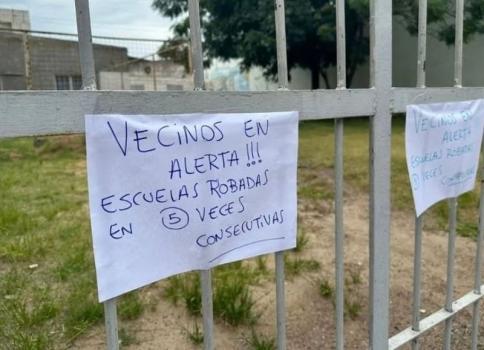 VECINOS EN
ALERTA!!!
ESCUELAS ROBADAS
EN 5 VECES
CONSECUTIVAS
VECINOS EN
ALERTA!!!
ESCUELAS ROBADAS
5 VECES